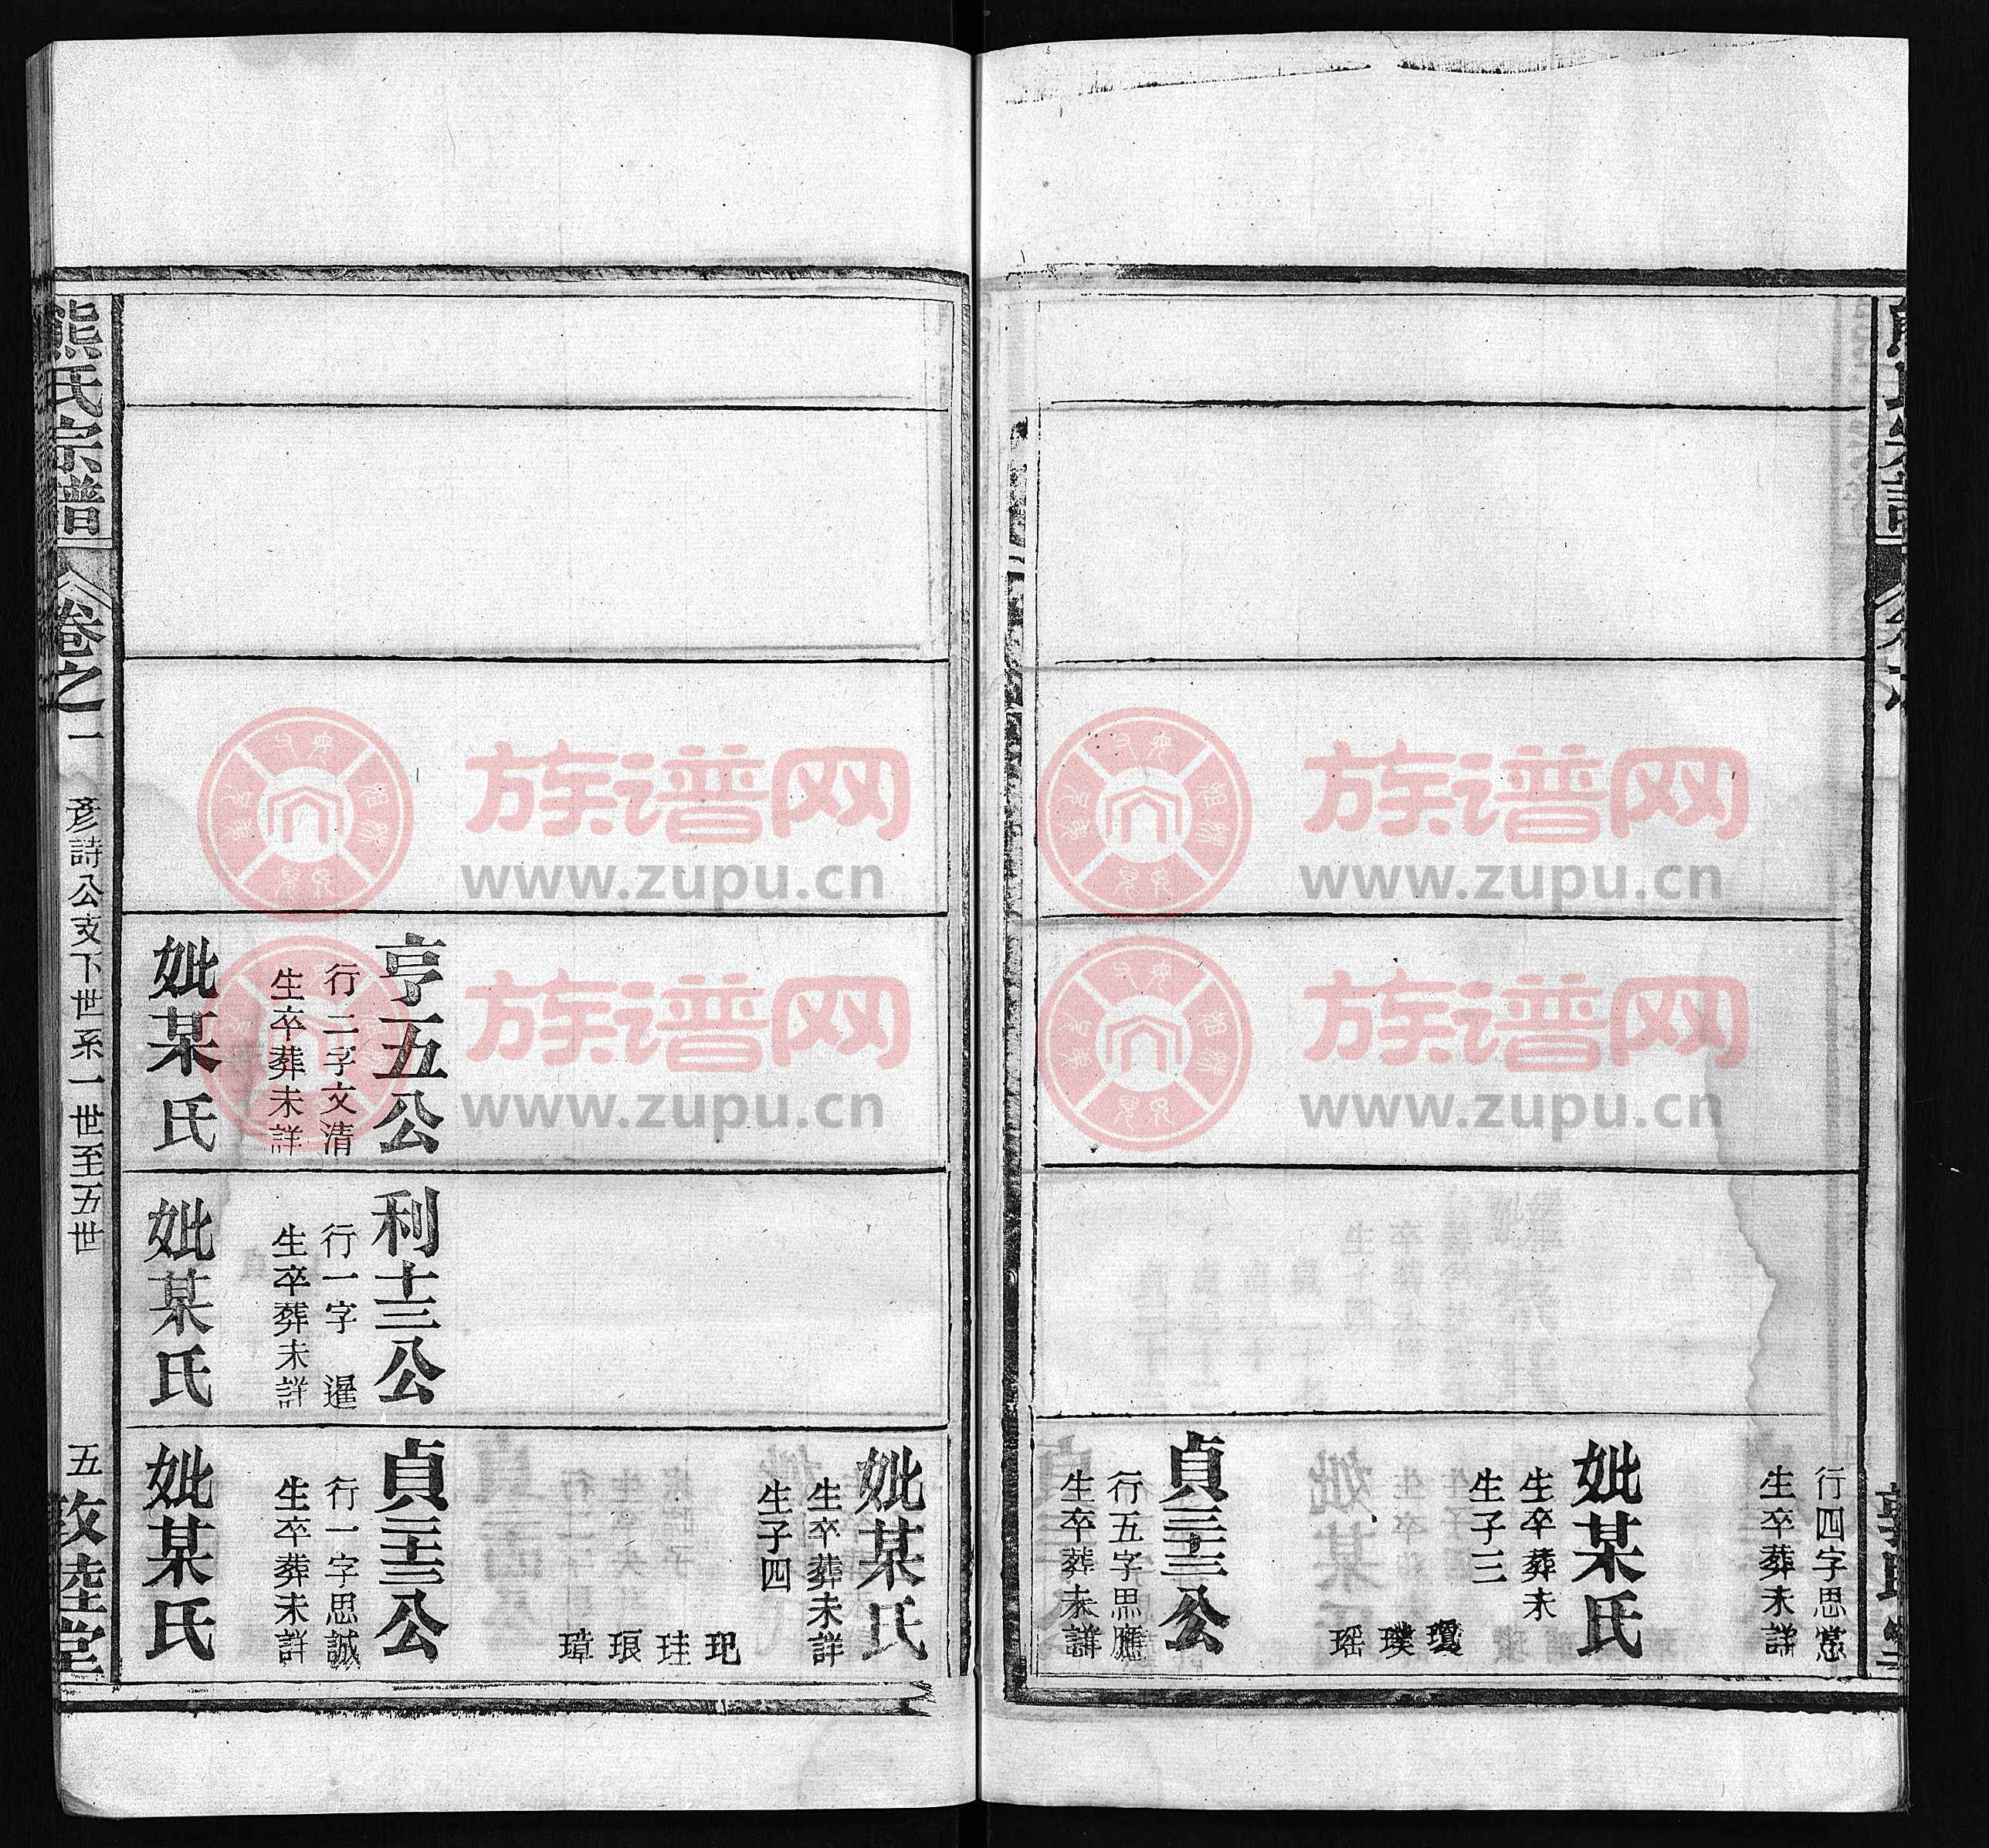 行四字思常
生卒葬未詳
妣某氏
生卒葬未
生子三
瓊
璞
瑶
貞三十三公
行五字思鷹
生卒葬未詳
妣某氏
生卒葬未詳
生子四
玘
珪
琅
璋
亨五公
行二字文清
生卒葬未詳
妣某氏
利十三公
行一字 暹
生卒葬未詳
妣某氏
貞三十三公
行一字思誠
生卒葬未詳
妣某氏
熊氏宗譜
卷之一
彦詩公支下世系一世至五世
五
敦睦堂
族谱网
www.zupu.cn
族谱网
www.zupu.cn
族谱网
www.zupu.cn
族谱网
www.zupu.cn